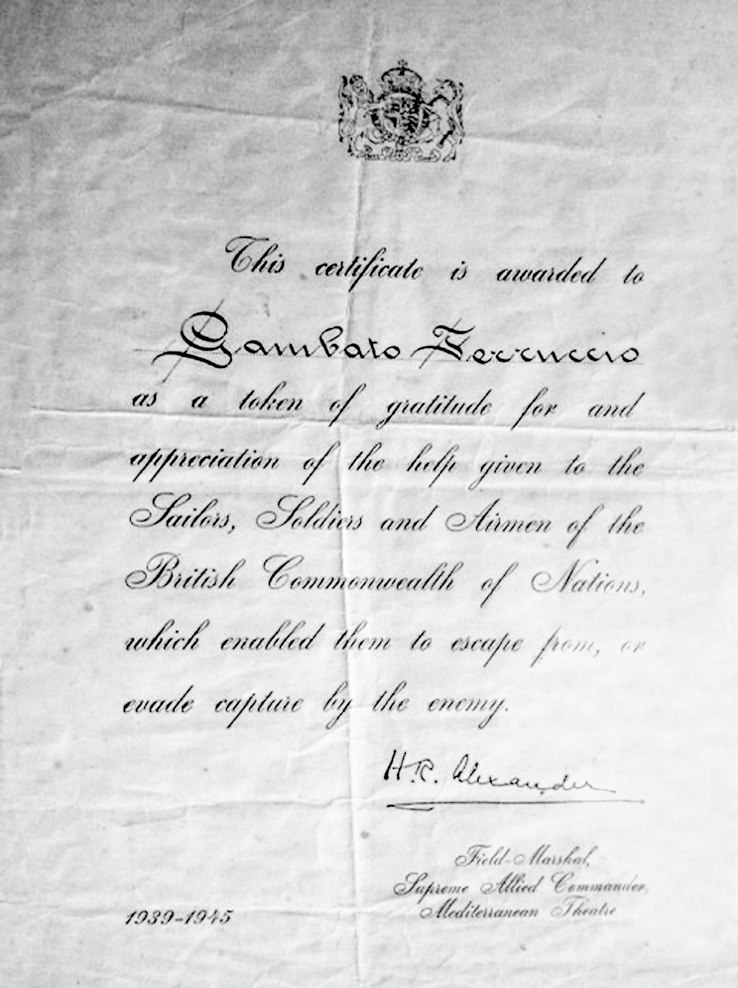 This certificate is awarded to
Gambato Ferruccio
as a token of gratitude for and
appreciation of the help given to the
Sailors, Soldiers and Airmen of the
British Commonwealth of Nations,
which enabled them to escape from, or
evade capture by the enemy.
H.R. Alexander
Field-Marshal,
Supreme Allied Commander,
Mediterranean Theatre
1939-1945